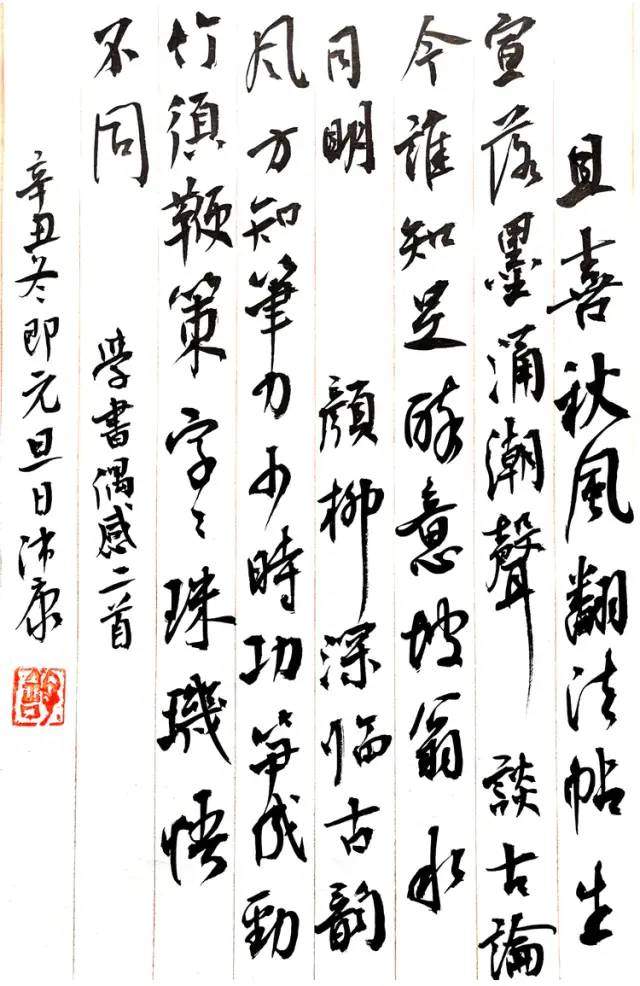 且喜秋風翻法帖生
宣落墨涌潮聲 談古論
今誰知足醉意坡翁水
月明 顏柳深临古韵
风方知筆力少時功笋成勁
竹須鞭策字〻珠璣悟
不同 学書偶感二首
辛丑冬即元旦日沛康